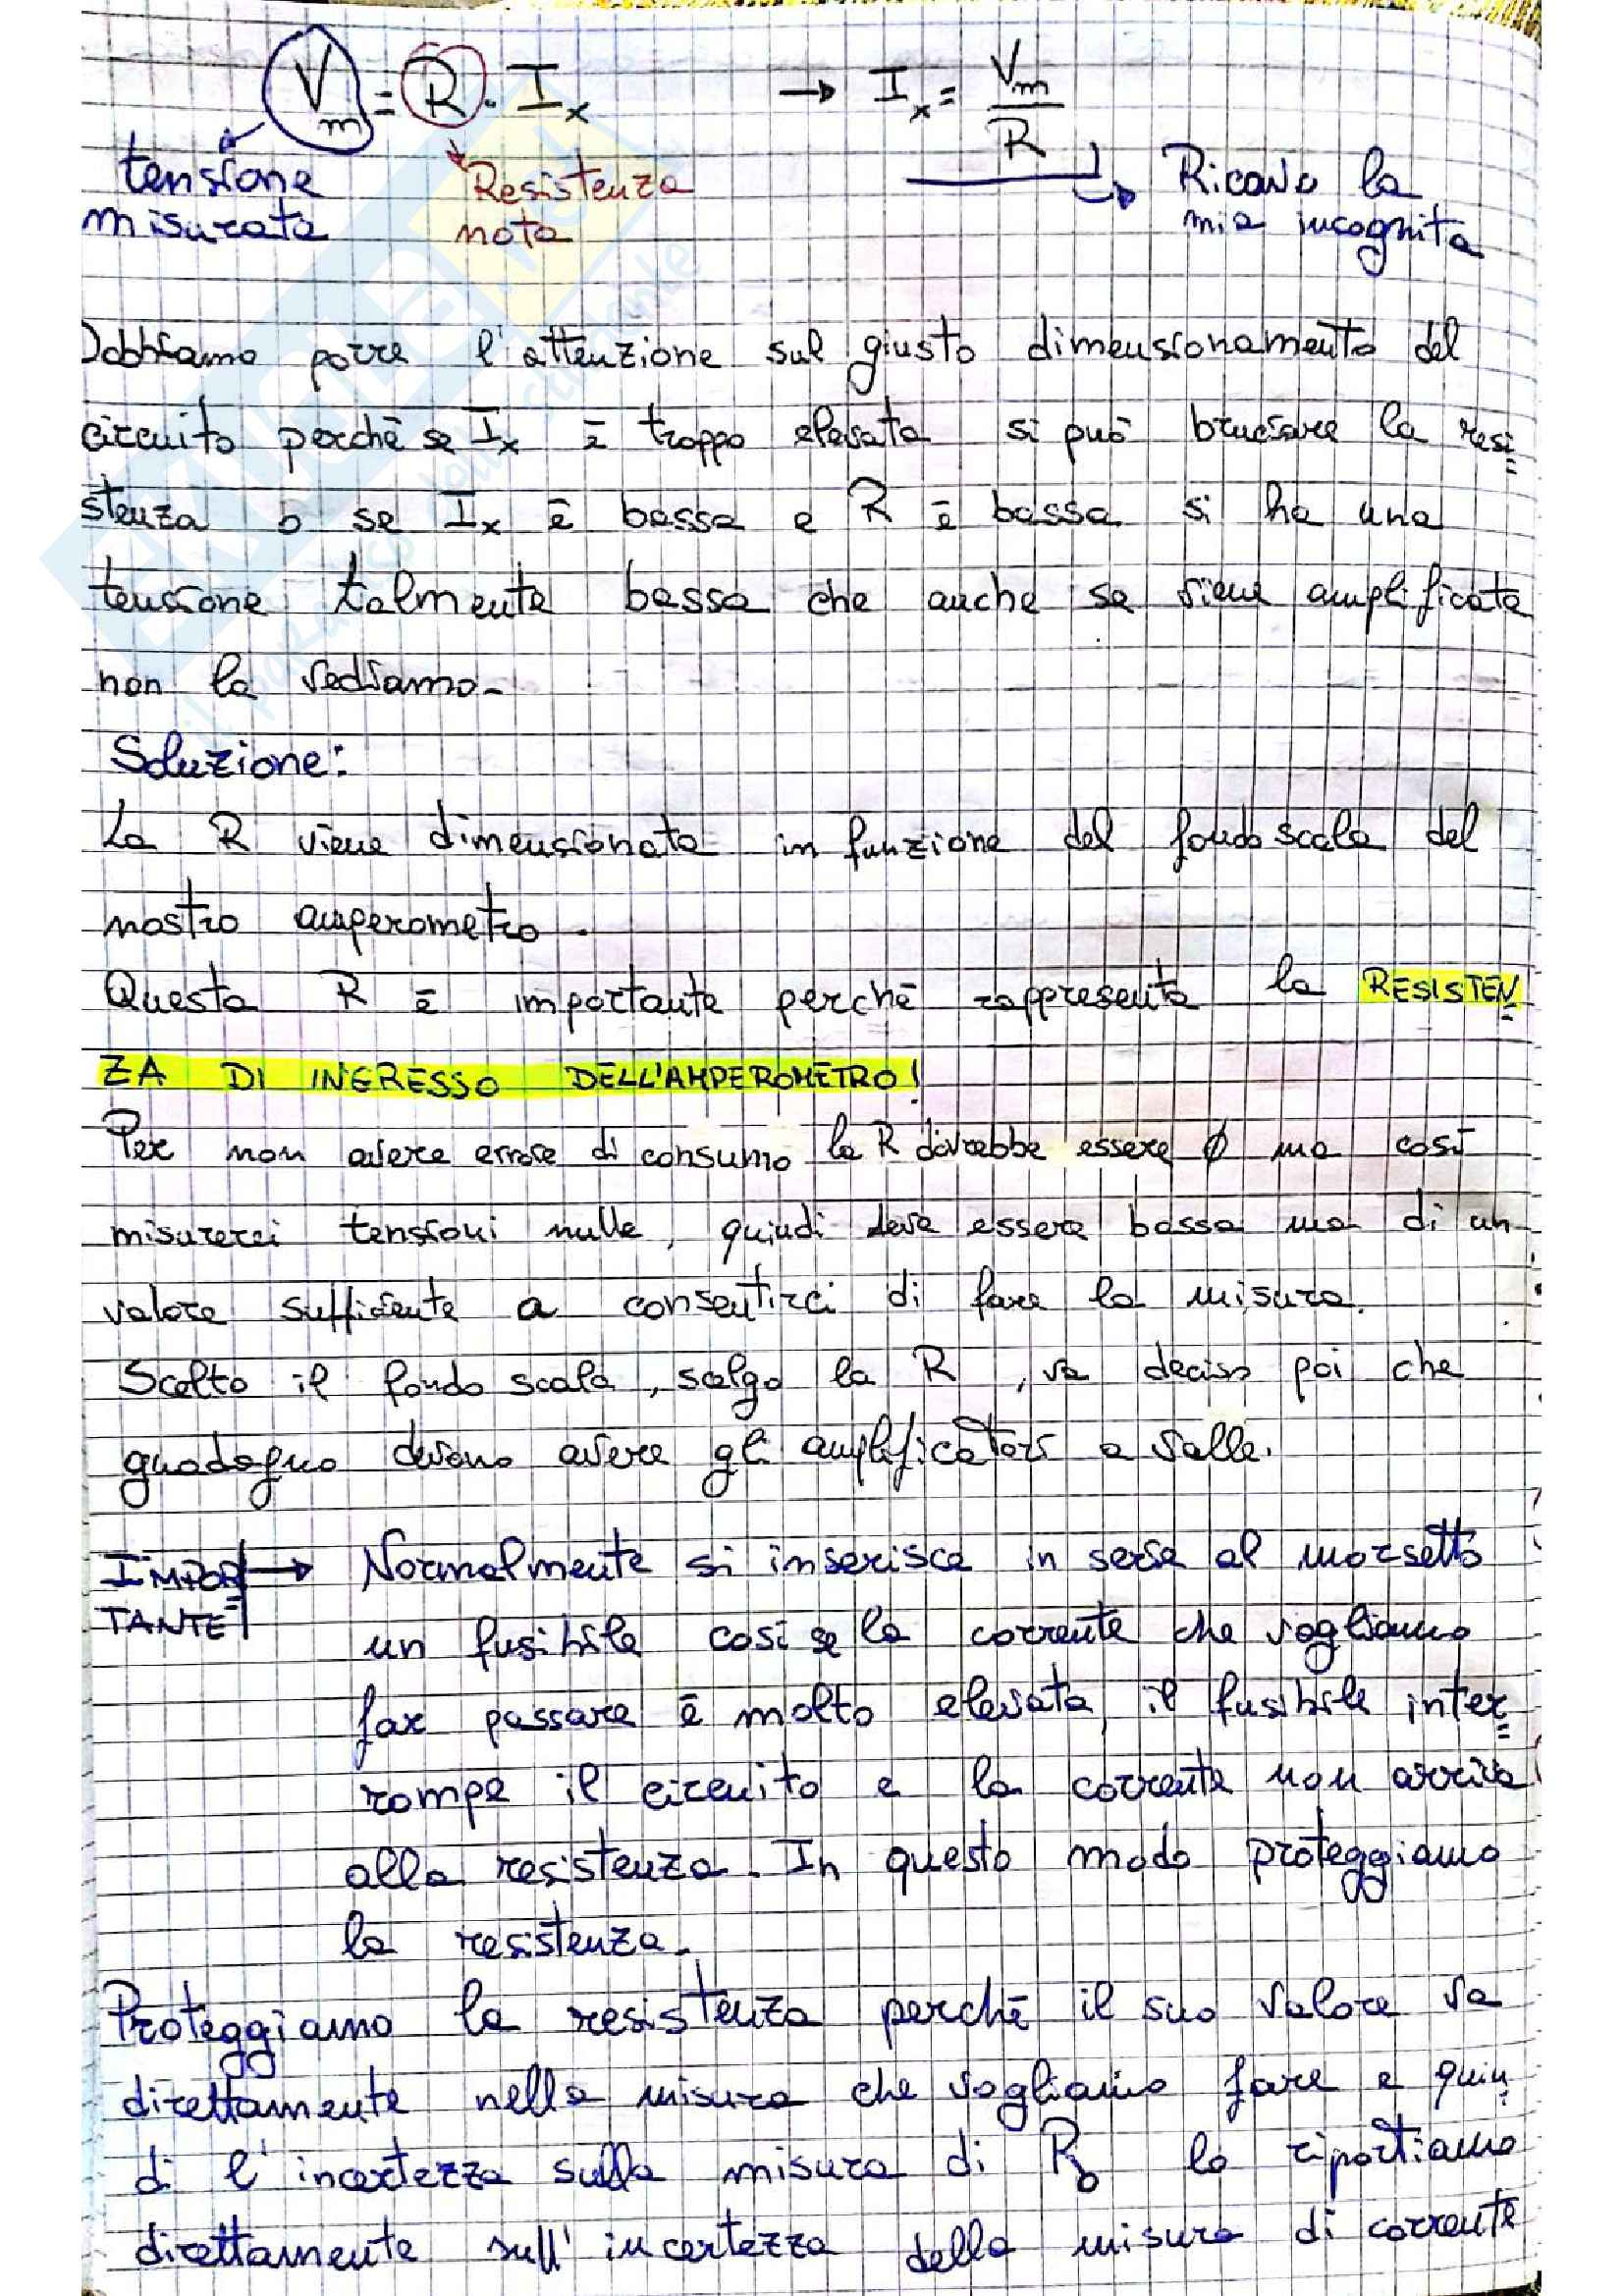 Vm = R · Ix → Ix = Vm / R
tensione misurata
Resistenza nota
Ricavo la mia incognita
Dobbiamo porre l'attenzione sul giusto dimensionamento del
circuito perchè se Ix è troppo elevata si può bruciare la resi
stenza o se Ix è bassa e R è bassa si ha una
tensione talmente bassa che anche se viene amplificata
non la vediamo.
Soluzione:
La R viene dimensionata in funzione del fondo scala del
nostro amperometro.
Questa R è importante perchè rappresenta la RESISTEN
ZA DI INGRESSO DELL'AMPEROMETRO!
Per non avere errore di consumo la R dovrebbe essere 0 ma così
misurerei tensioni nulle, quindi deve essere bassa ma di un
valore sufficiente a consentirci di fare la misura.
Scelto il fondo scala, scelgo la R, va deciso poi che
guadagno devono avere gli amplificatori a valle.
IMPOR
TANTE → Normalmente si inserisce in serie al morsetto
un fusibile così se la corrente che vogliamo
far passare è molto elevata, il fusibile inter
rompe il circuito e la corrente non arriva
alla resistenza. In questo modo proteggiamo
la resistenza.
Proteggiamo la resistenza perchè il suo valore va
direttamente nella misura che vogliamo fare e quin
di l'incertezza sulla misura di Ro la riportiamo
direttamente sull'incertezza della misura di corrente